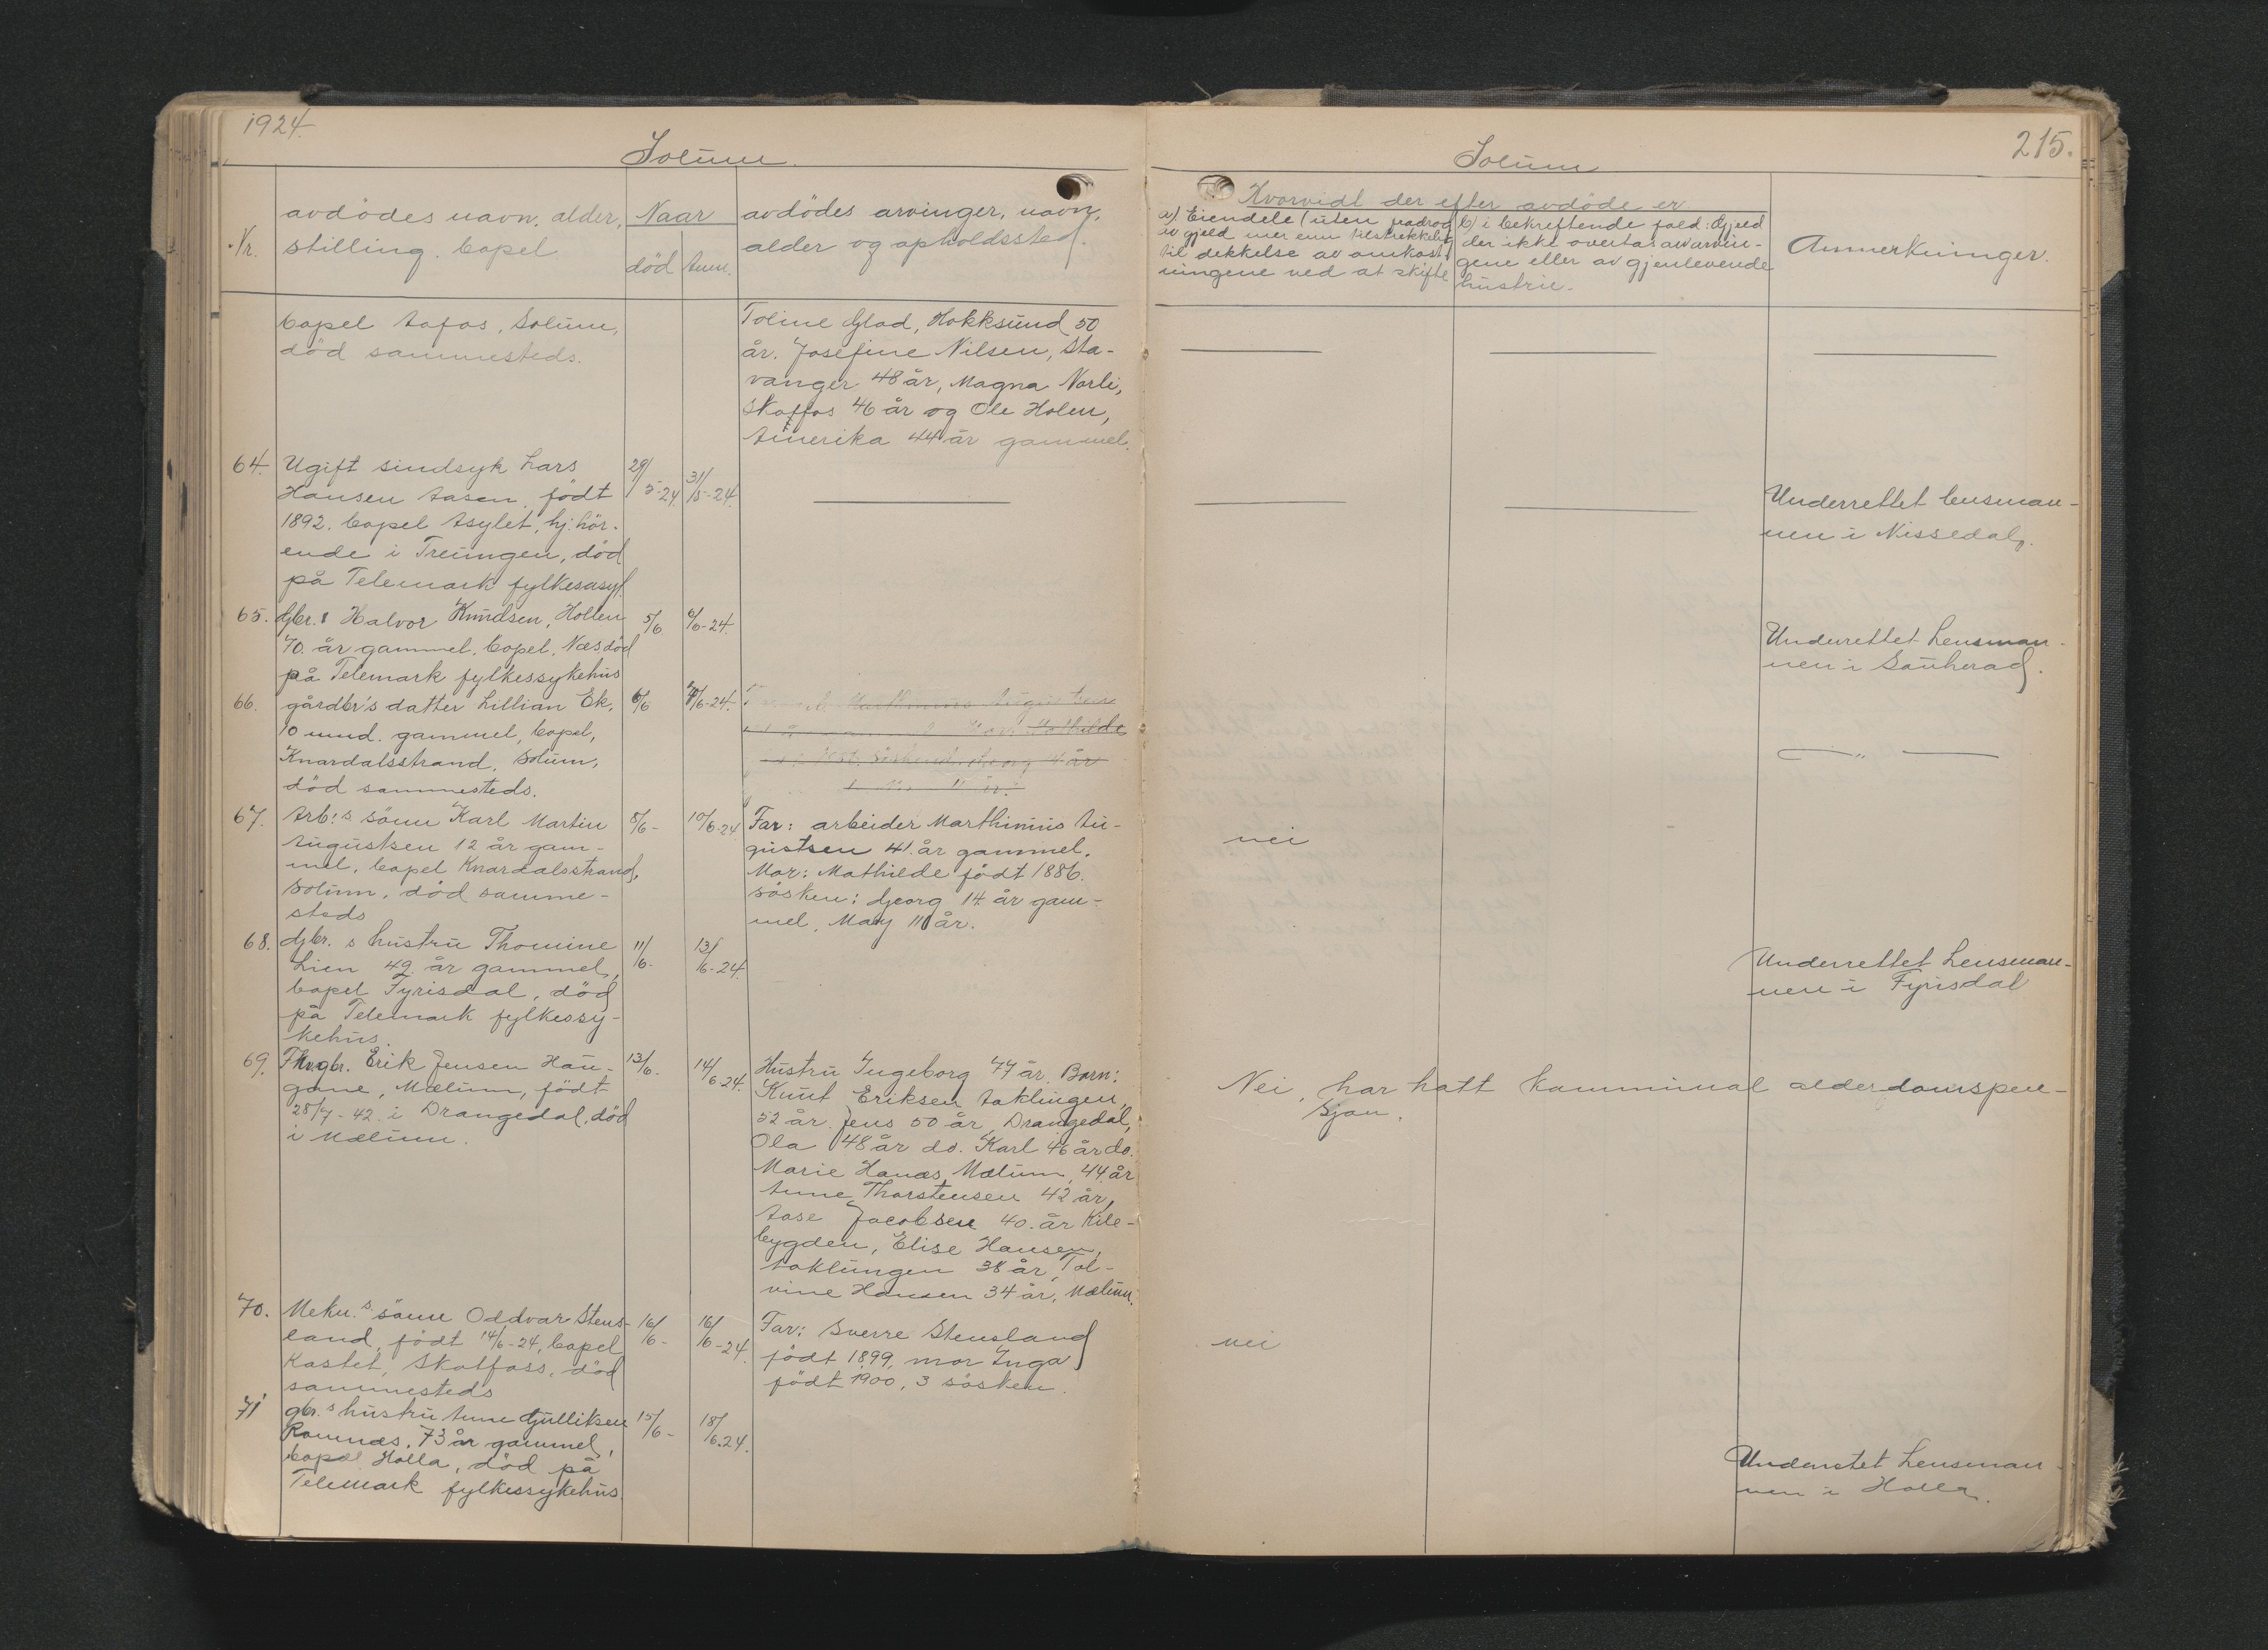 1924.
Solum.
Nr.
avdödes navn, alder,
stilling. bopel
Naar
död
anm.
avdödes arvinger, navn,
alder og opholdssted.
bopel Aafos, Solum,
död sammesteds.
Toline Glad, Hokksund 50
år. Josefine Nilsen, Sta-
vanger 48 år, Magna Norli,
Skotfos 46 år og Ole Holen,
Amerika 44 år gammel.
64. Ugift sindsyk Lars
Hansen Aasen, födt
1892, bopel Asylet, hj. hör-
ende i Treungen, död
på Telemark fylkesasyl.
29/5-24
31/5-24
65. Gbr. Halvor Knudsen, Holten
70. år gammel. bopel, Næs, död
på Telemark fylkessykehus
5/6
6/6-24.
66. gårdbr's datter Lillian Ek,
10 mnd. gammel, bopel,
Knardalsstrand, Solum,
död sammesteds.
6/6
7/6-24.
Marthinius Augustsen
Mathilde
Georg 14 år
67. Arb.s sönn Karl Martin
Augustsen 12 år gam-
mel, bopel Knardalsstrand,
Solum, död samme-
steds
8/6-
10/6-24
Far: arbeider Marthinius Au-
gustsen 41. år gammel.
Mor: Mathilde födt 1886.
sösken: Georg 14 år gam-
mel, May 11 år.
68. Gbr. s hustru Thomine
Lien 49 år gammel,
bopel Fyrisdal, död
på Telemark fylkessy-
kehus.
11/6-
13/6-24
69. Fhv. gbr. Erik Jensen Hau-
gane, Mælum, födt
28/7-42 i Drangedal, död
i Mælum.
13/6.
14/6 24.
Hustru Ingeborg 77 år. Barn:
Knut Eriksen Aaklungen,
52 år. Jens 50 år, Drangedal,
Ola 48 år do. Karl 46 år do.
Marie Hanæs, Mælum, 44. år
Anne Thorstensen 42 år,
Aase Jacobsen 40. år Kile-
bygden, Elise Hansen,
Aaklungen 38 år, Tol-
vine Hansen 34 år, Mælum.
70. Mekn.s sönn Oddvar Stens-
land, födt 14/6-24, bopel
Kastet, Skotfoss, död
sammesteds
16/6-
16/6-24.
Far: Sverre Stensland
födt 1899, mor Inga
födt 1900, 3 sösken.
71 gbr.s hustru Anne Gulliksen
Romnæs, 73 år gammel,
bopæl Holla, död på
Telemark fylkessykehus.
15/6-
18/6.24.
215.
Solum
Hvorvidt der efter avdöde er
a) Eiendele (uten fradrag
av gjeld mer enn tilstrekkelig
til dekkelse av omkost-
ningene ved at skifte
b) i bekreftende fald: Gjeld
der ikke overtas av arvin-
gene eller av gjenlevende
hustru.
Anmerkninger.
Underrettet lensman-
nen i Nissedal.
Underettet Lensman-
nen i Sauherad.
— " —
nei
Underrettet Lensman-
nen i Fyrisdal
Nei, har hatt kommunal alderdomspen-
sjon.
nei
Underretet Lensman-
nen i Holla.